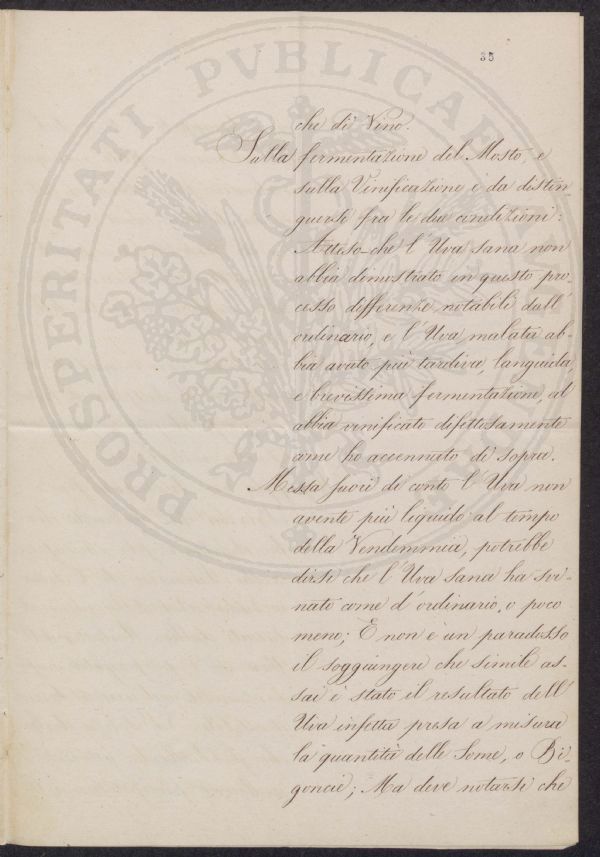 35
PROSPERITATI PVBLICAE
che di Vino.
Sulla fermentazione del Mosto, e
sulla Vinificazione è da distin-
guersi fra le due condizioni:
Atteso-che l'Uva sana non
abbia dimostrato in questo pro-
cesso differenze notabili dall'
ordinario, e l'Uva malata ab-
bia avuto più tardiva, languida,
e brevissima fermentazione, ed
abbia vinificato difettosamente
come ho accennato di sopra.
Messa fuori di conto l'Uva non
avente più liquido al tempo
della Vendemmia, potrebbe
dirsi che l'Uva sana ha svi-
nato come d'ordinario, o poco
meno; E non è un paradosso
il soggiungere che simile as-
sai è stato il resultato dell'
Uva infetta presa a misura
la quantità delle Some, o Bi-
goncie; Ma deve notarsi che